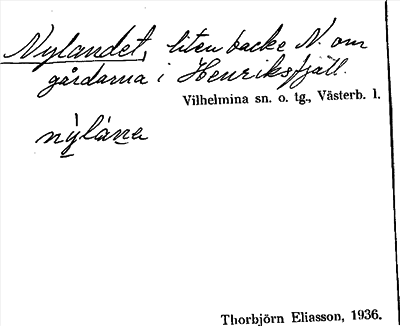 Nylandet, liten backe N. om
gårdarna i Henriksfjäll.
Vilhelmina sn. o. tg., Västerb. l.
nỳlána
Thorbjörn Eliasson, 1936.